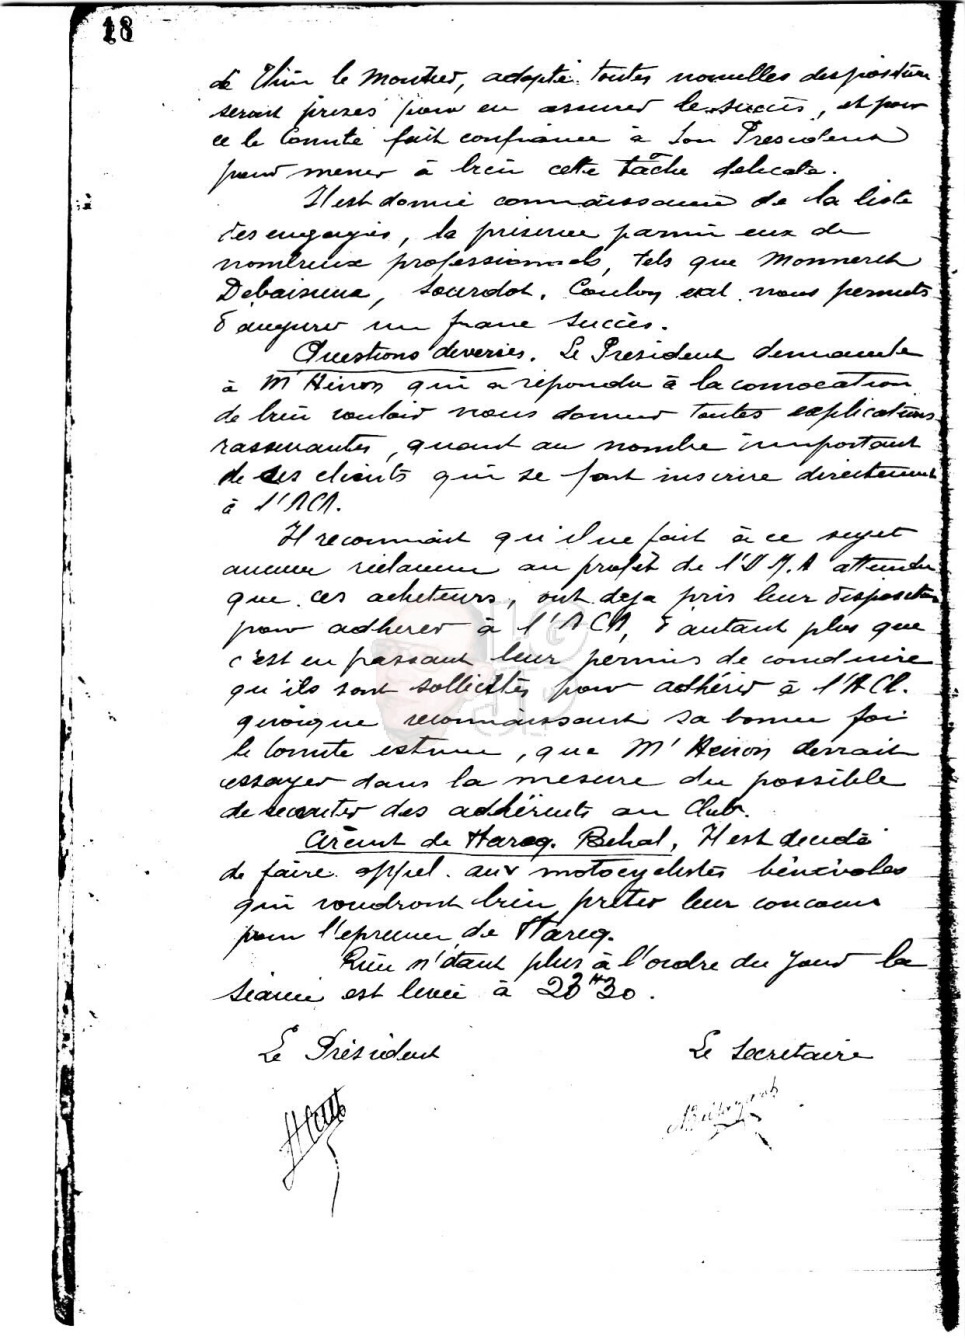 18
de Thin le Moutier, adopté toutes nouvelles dispositions
seront prises pour en assurer le succès, et pour
ce le Comité fait confiance à son President
pour mener à bien cette tâche delicate.
Il est donné connaissance de la liste
des engagés, la présence parmi eux de
nombreux professionnels, tels que Monneret
Debaisieux, Sourdot, Coulon ext. nous permets
d'augurer un franc succès.
Questions diverses. Le President demande
à Mr Heiron qui a répondu à la convocation
de bien vouloir nous donner toutes explications
rassurantes, quant au nombre important
de ses clients qui se font inscrire directement
à l'ACA.
Il reconnait qu'il ne fait à ce sujet
aucune réclame au profit de l'U.M.A attendu
que ces acheteurs, ont deja pris leur disposition
pour adherer à l'ACA, d'autant plus que
c'est en passant leur permis de conduire
qu'ils sont sollicités pour adhérer à l'ACA.
quoique reconnaissant sa bonne foi
le Comité estime, que Mr Heiron devrait
essayer dans la mesure du possible
de recruter des adhérents au Club.
Circuit de Haracq. Behal, Il est decidé
de faire appel aux motocyclistes bénévoles
qui voudront bien preter leur concours
pour l'epreuve de
Rien n'étant plus à l'ordre du Jour la
Séance est levée à 23H30.
Le Président Le Secretaire